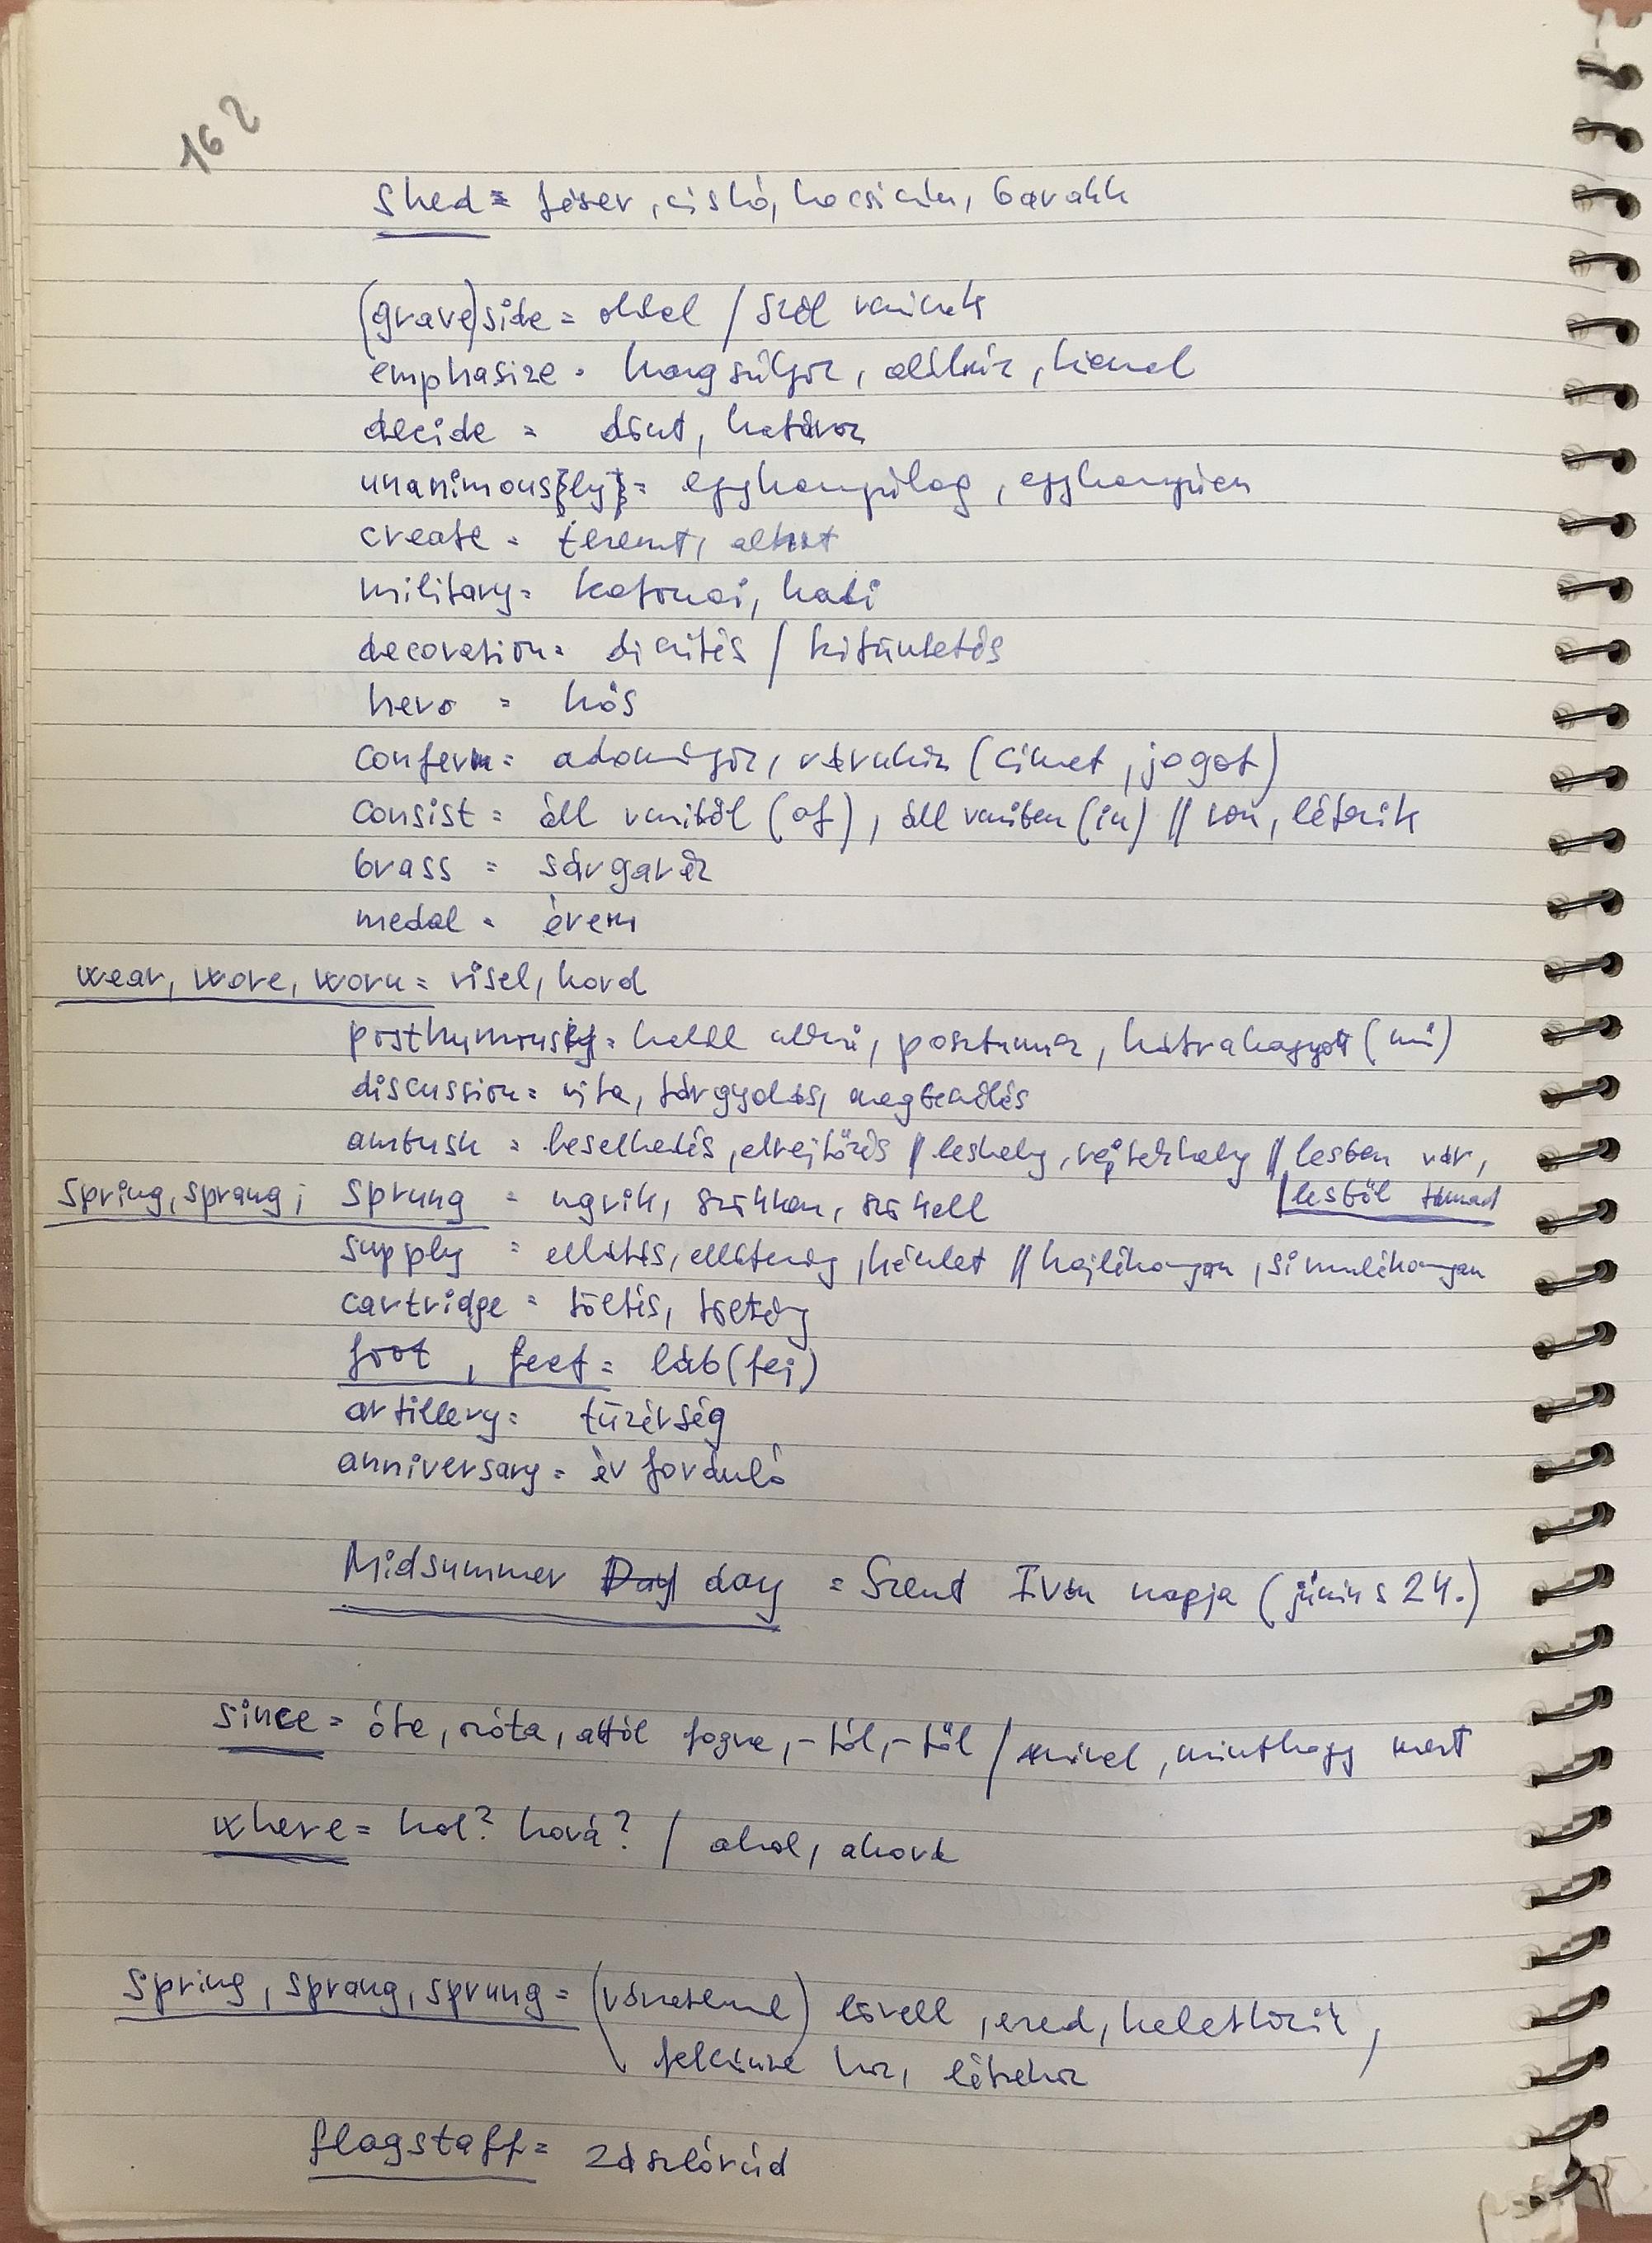 162
shed = fészer, csűr, kocsiszín, barakk
(grave)side = oldal / szél vminek
emphasize = hangsúlyoz, aláhúz, kiemel
decide = dönt, határoz
unanimous[ly] = egyhangúlag, egyhangúan
create = teremt, alkot
military = katonai, hadi
decoration = díszítés / kitüntetés
hero = hős
confer = adományoz, ráruház (címet, jogot)
consist = áll vmiből (of), áll vmiben (in) // van, létezik
brass = sárgaréz
medal = érem
wear, wore, worn = visel, hord
posthumous = halál utáni, posztumusz, hátrahagyott (mű)
discussion = vita, tárgyalás, megbeszélés
ambush = leselkedés, elrejtőzés // leshely, rejtekhely // lesben vár,
lesből támad
spring, sprang, sprung = ugrik, szökken, szökell
supply = ellátás, ellátmány, készlet // hajlékonyan, simulékonyan
cartridge = töltés, töltény
foot, feet = láb(fej)
artillery = tüzérség
anniversary = évforduló
Midsummer Day day = Szent Iván napja (június 24.)
since = óta, azóta, attól fogva, -tól, -től / mivel, minthogy mert
where = hol? hová? / ahol, ahová
spring, sprang, sprung = (váratlanul) lövell, ered, keletkezik,
felszínre hoz, létrehoz
flagstaff = zászlórúd